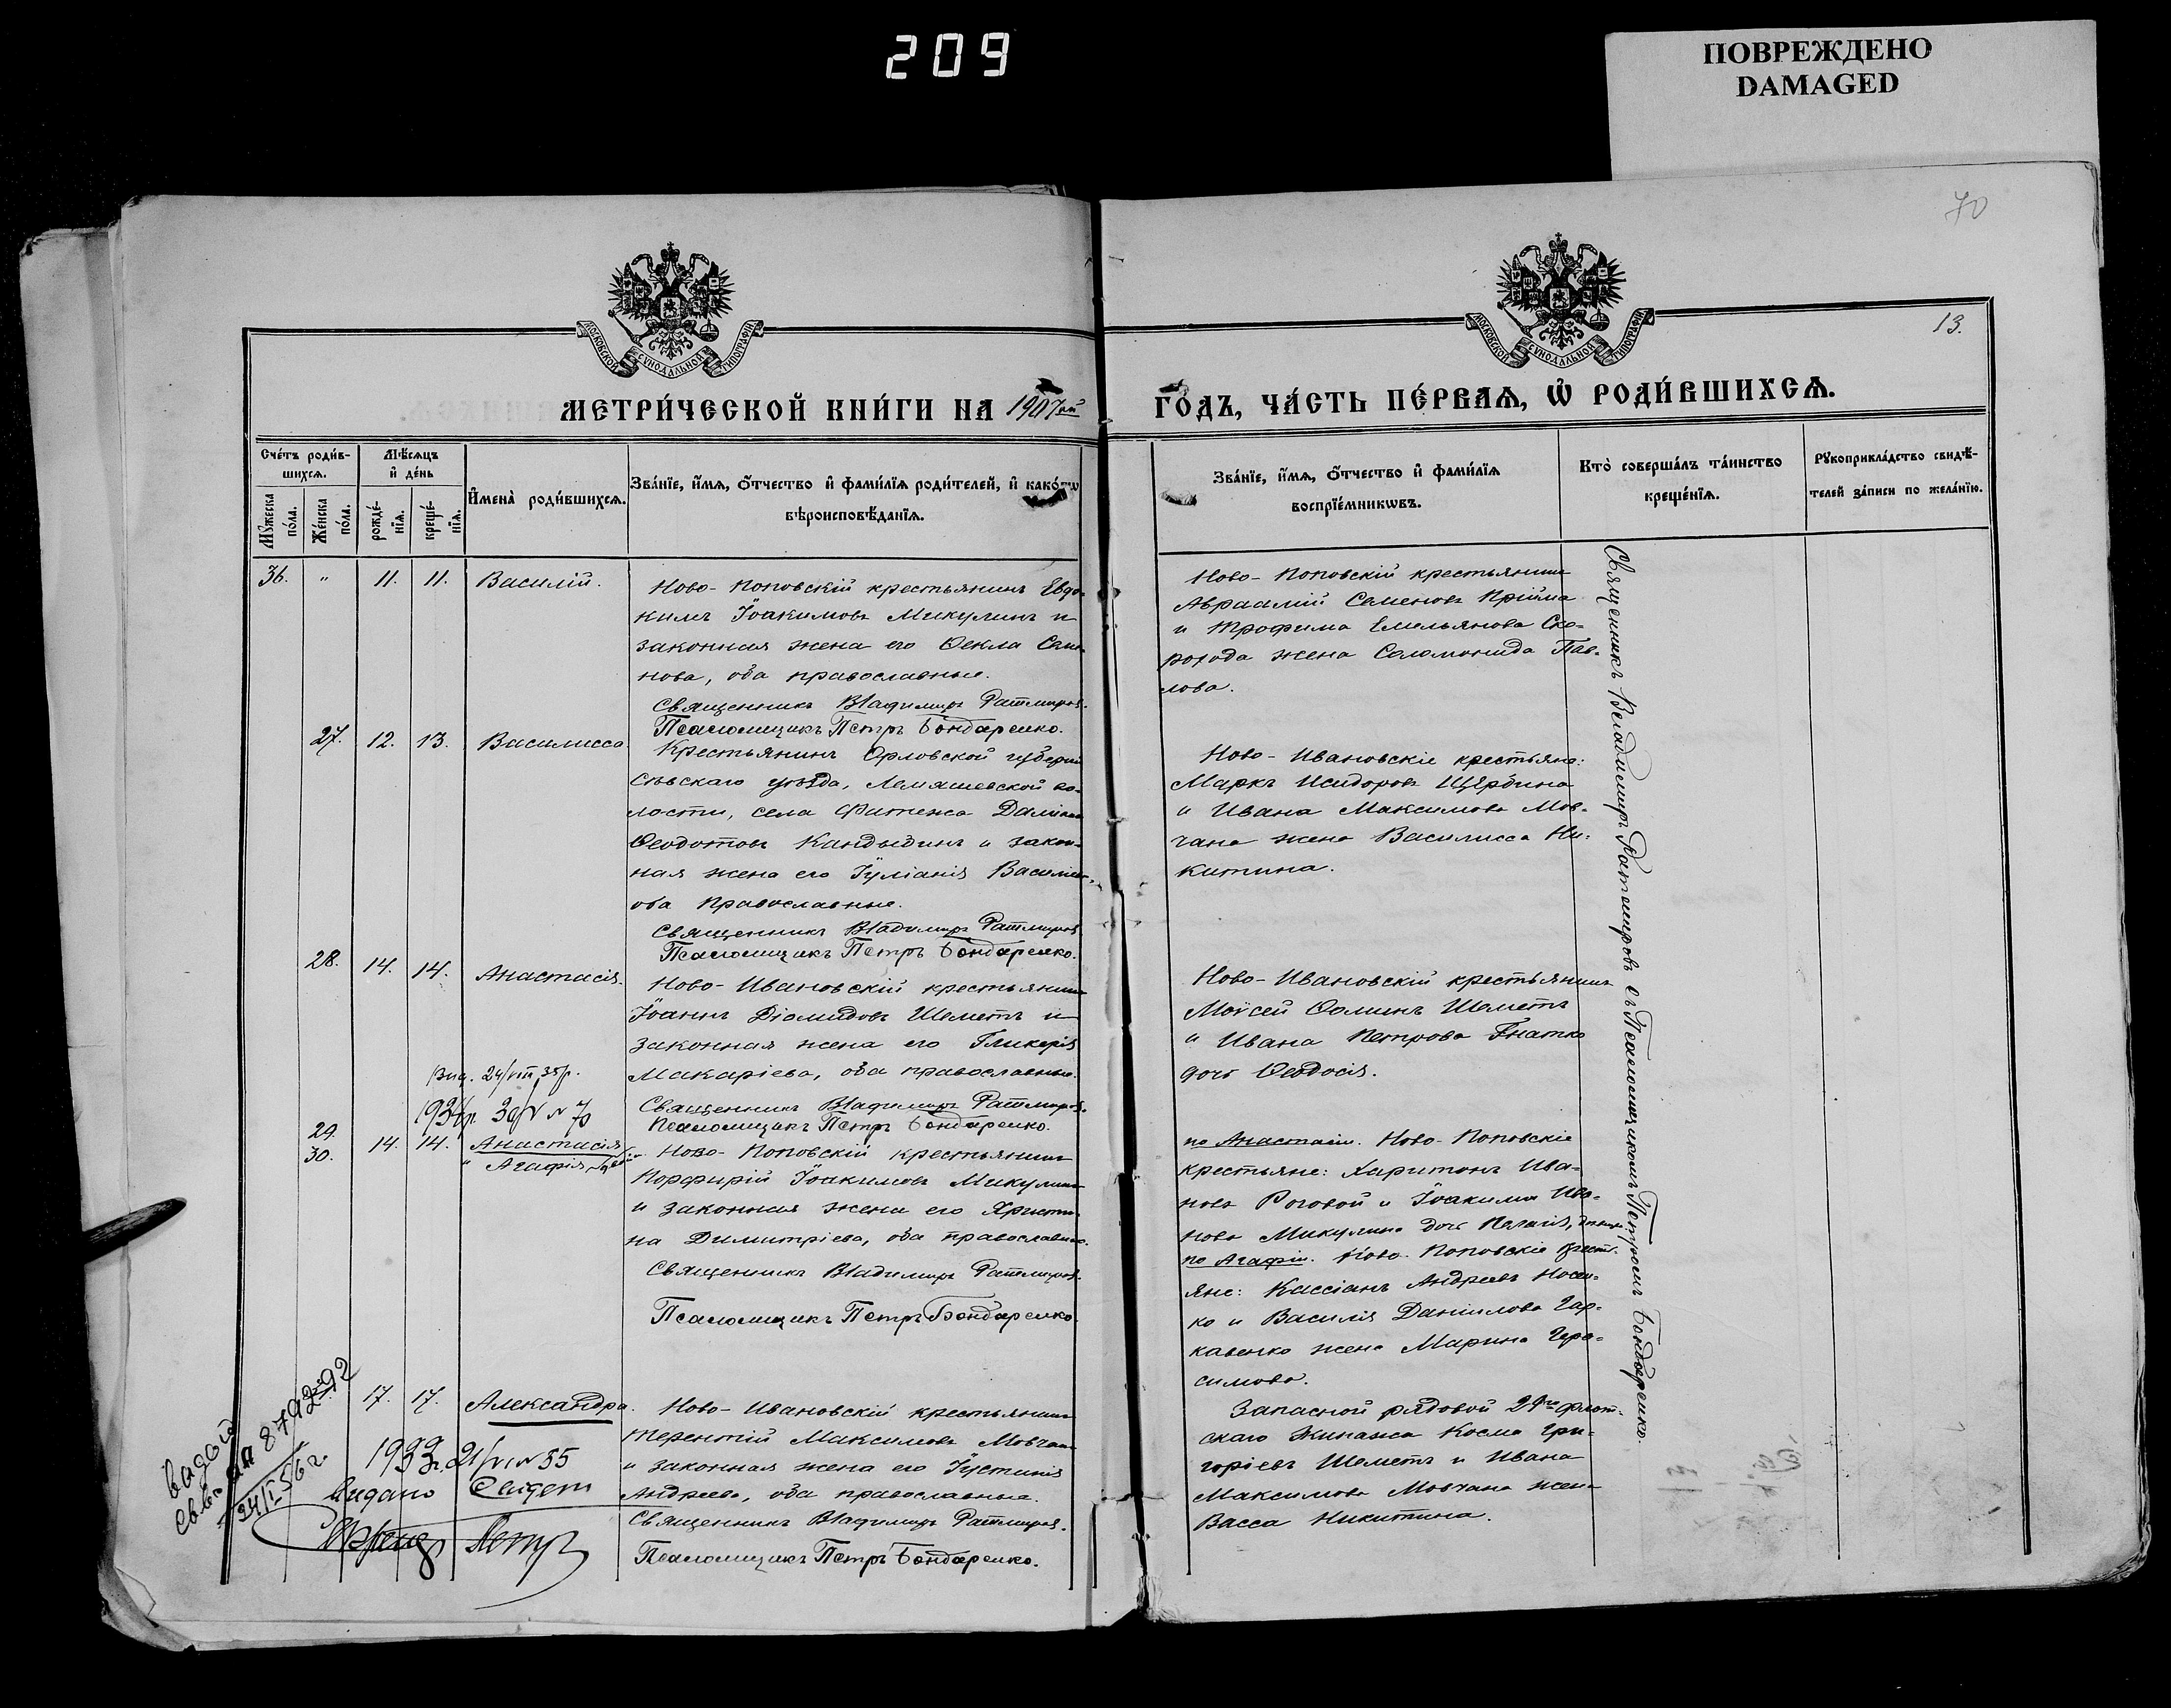 209
ПОВРЕЖДЕНО
DAMAGED
70
МОСКОВСКОЙ СѴНОДАЛЬНОЙ ТИПОГРАФІИ
МОСКОВСКОЙ СѴНОДАЛЬНОЙ ТИПОГРАФІИ
13.
МЕТРИ́ЧЕСКОЙ КНИ́ГИ НА 1907ой
ГО́ДЪ, ЧА́СТЬ ПЕ́РВАѦ, Ѡ҆ РОДИ́ВШИХСѦ.
Сче́тъ роди́в-
шихсѧ.
Мꙋжеска по́ла.
Же́нска по́ла.
Мѣ́сѧцъ
и҆ де́нь
рожде́-
нїѧ.
креще́-
нїѧ.
И҆мена̀ роди́вшихсѧ.
Зва́нїе, и҆́мѧ, ѻ҆́тчество и҆ фами́лїѧ роди́телей, и҆ како́гѡ
вѣроисповѣ́данїѧ.
Зва́нїе, и҆́мѧ, ѻ҆́тчество и҆ фами́лїѧ
воспрїе́мникѡвъ.
Кто̀ соверша́лъ та́инство
креще́нїѧ.
Рꙋкоприкла́дство свидѣ́-
телей за́писи по жела́нїю.
36. " 11. 11. Василій.
Ново-Поповскій крестьянинъ Евдо-
кимъ Іоакимовъ Микулинъ и
законная жена его Ѳекла Семе-
нова, оба православные.
Священникъ Владимиръ Ратмировъ.
Псаломщикъ Петръ Бондаренко.
Ново-Поповскій крестьянинъ
Авраамій Семеновъ Прійма
и Трофима Емельянова Ско-
рохода жена Соломонида Пав-
лова.
27. 12. 13. Василисса
Крестьянинъ Орловской губерніи
Сѣвскаго уѣзда, Лемяшевской во-
лости, села Фатежа Даміанъ
Ѳеодотовъ Кандыдинъ и закон-
ная жена его Іуліанія Василіева,
оба православные.
Священникъ Владимиръ Ратмировъ
Псаломщикъ Петръ Бондаренко.
Ново-Ивановскіе крестьяне:
Маркъ Исидоровъ Щербина
и Ивана Максимова Мов-
чана жена Василисса Ни-
китина.
28. 14. 14. Анастасія.
Ново-Ивановскій крестьянинъ
Іоаннъ Діомидовъ Шеметъ и
законная жена его Гликерія
Макаріева, оба православные.
Священникъ Владимиръ Ратмировъ.
Псаломщикъ Петръ Бондаренко.
Ново-Ивановскій крестьянинъ
Моисей Ѳоминъ Шеметъ
и Ивана Петрова Гнатко
дочь Ѳеодосія.
29.
30. 14. 14. Анастасія
" Агафія
Ново-Поповскій крестьянинъ
Порфирій Іоакимовъ Микулинъ
и законная жена его Христи-
на Димитріева, оба православные.
Священникъ Владимиръ Ратмировъ.
Псаломщикъ Петръ Бондаренко.
по Анастасіи. Ново-Поповскіе
крестьяне: Харитонъ Ива-
новъ Роговой и Іоакима Ива-
нова Микулина дочь Пелагія,
по Агафіи. Ново-Поповскіе крест-
яне: Кассіанъ Андреевъ Носен-
ко и Василія Даніилова Гар-
кавенко жена Марина Гера-
симова.
17. 17. Александра.
Ново-Ивановскій крестьянинъ
Терентій Максимовъ Мовчанъ
и законная жена его Іустинія
Андреева, оба православные.
Священникъ Владимиръ Ратмировъ.
Псаломщикъ Петръ Бондаренко.
Запасной рядовой 29го флот-
скаго Экипажа Косма Гри-
горіевъ Шеметъ и Ивана
Максимова Мовчана жена
Васса Никитина.
Священникъ Владимиръ Ратмировъ съ Псаломщикомъ Петромъ Бондаренко.
24/I 56 г.
Видано
Петръ